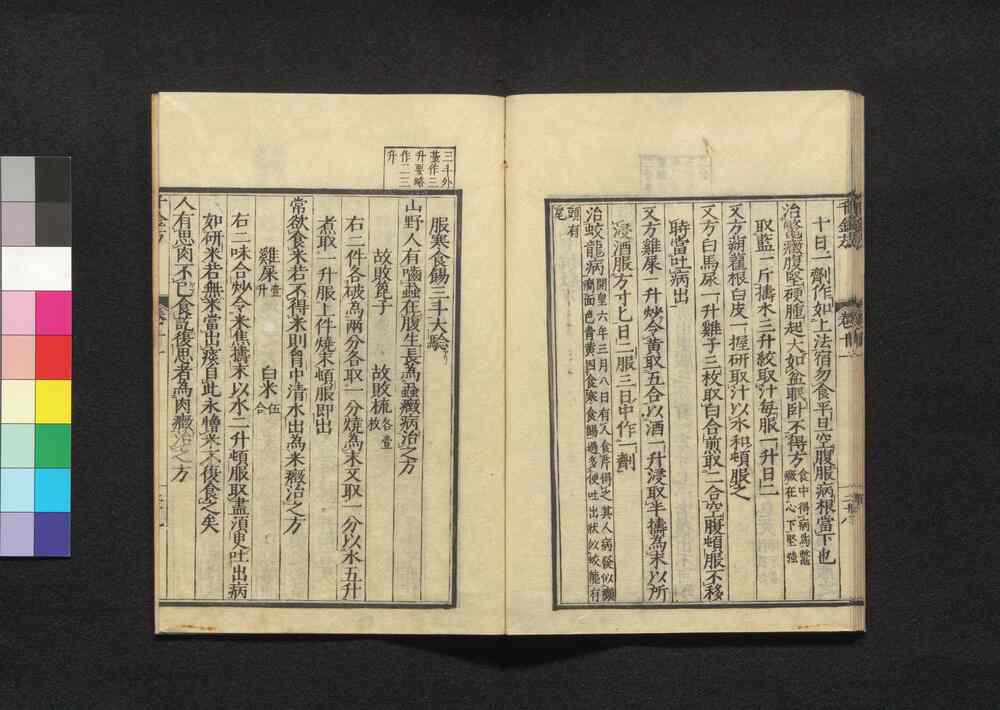 十日一劑作如上法宿勿食平旦空腹服病根當下也
治鼈癥腹堅硬腫起大如盆眠卧不得方食中得病為鼈
癥在心下堅強
取藍一斤擣水三升絞取汁每服一升日二
又方蒴藋根白皮一握研取汁以水和頓服之
又方白馬尿一升雞子三枚取白合煎取二合空腹頓服不移
時當吐病出
又方雞屎一升炒令黄取五合以酒一升浸取半擣為末以所
浸酒服方寸匕日二服三日中作一劑
治蛟龍病開皇六年三月八日有人食芹得之其人病發似癲
癇面色青黄因食寒食餳過多便吐出狀似蛟龍有
頭有
尾
三斗外
臺作三
升要略
作二三
升
服寒食餳三斗大驗
山野人有嚙蝨在腹生長為蝨癥病治之方
故敗篦子 故敗梳各壹
枚
右二件各破為兩分各取一分燒為末又取一分以水五升
煮取一升服上件燒末頓服即出
常欲食米若不得米則胷中清水出為米癥治之方
雞屎壹
升 白米伍
合
右二味合炒令米焦擣末以水二升頓服取盡須臾吐出病
如研米若無米當出痰自此永憎米不復食之矣
人有思肉不已食訖復思者為肉癥治之方